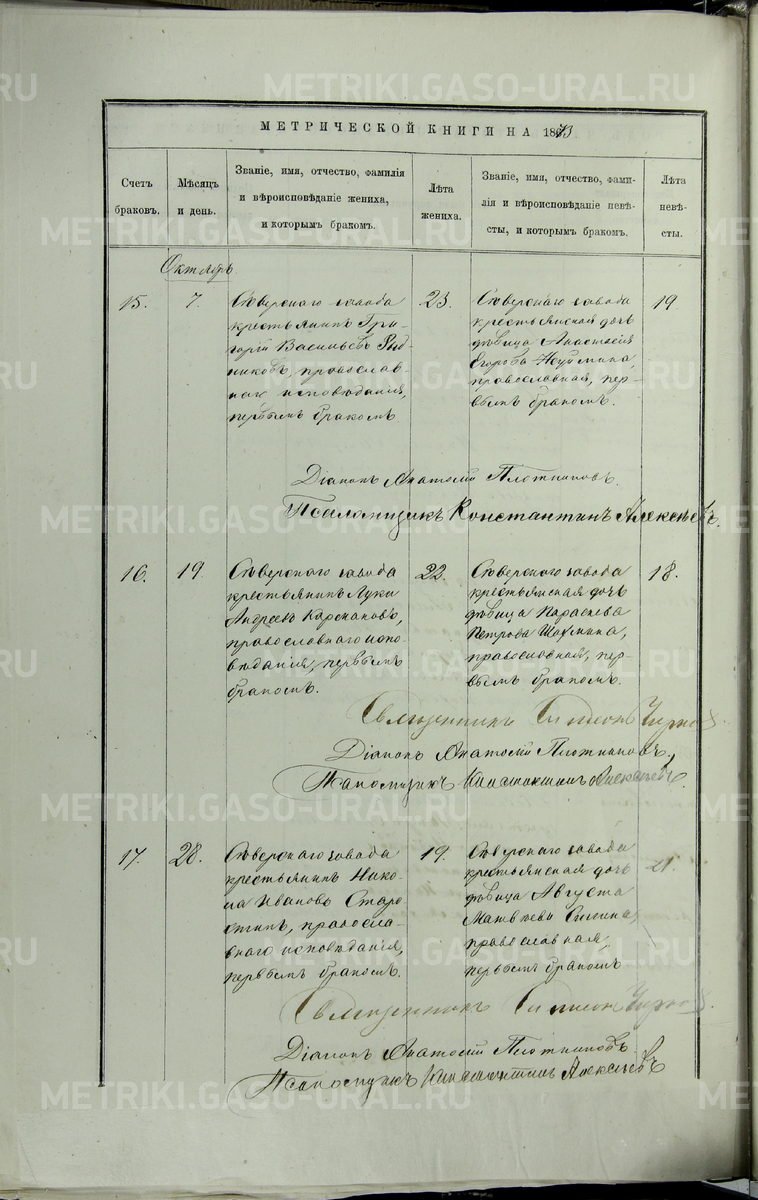 METRIKI.GASO-URAL.RU
МЕТРИЧЕСКОЙ КНИГИ НА 1873
Счетъ браковъ.
Мѣсяцъ и день.
Званіе, имя, отчество, фамилія
и вѣроисповѣданіе жениха,
и которымъ бракомъ.
Лѣта жениха.
Званіе, имя, отчество, фами-
лія и вѣроисповѣданіе невѣ-
сты, и которымъ бракомъ.
Лѣта невѣ-
сты.
Октябрь
15.
7.
Сѣверскаго завода
крестьянинъ Гри-
горій Васильевъ
православ-
наго исповѣданія,
первымъ бракомъ
25.
Сѣверскаго завода
крестьянская дочь
дѣвица Анастасія
Егорова Неуймина,
православная, пер-
вымъ бракомъ.
19.
Діаконъ Анатолій Плотниковъ.
Псаломщикъ Константинъ Алексѣевъ.
16.
19.
Сѣверскаго завода
крестьянинъ Лука
Андреевъ Кармановъ,
православнаго испо-
вѣданія, первымъ
бракомъ.
22.
Сѣверскаго завода
крестьянская дочь
дѣвица Параскева
Петрова Шахмина,
православная, пер-
вымъ бракомъ.
18.
Священникъ Симеонъ
Діаконъ Анатолій Плотниковъ,
Псаломщикъ Константинъ Алексѣевъ.
17.
28.
Сѣверскаго завода
крестьянинъ Нико-
ла Ивановъ Старо
стинъ, правосла-
внаго исповѣданія,
первымъ бракомъ.
19.
Сѣверскаго завода
крестьянская дочь
дѣвица Августа
Матвѣева
православная,
первымъ бракомъ
21.
Священникъ Симеонъ
Діаконъ Анатолій Плотниковъ.
Псаломщикъ Константинъ Алексѣевъ